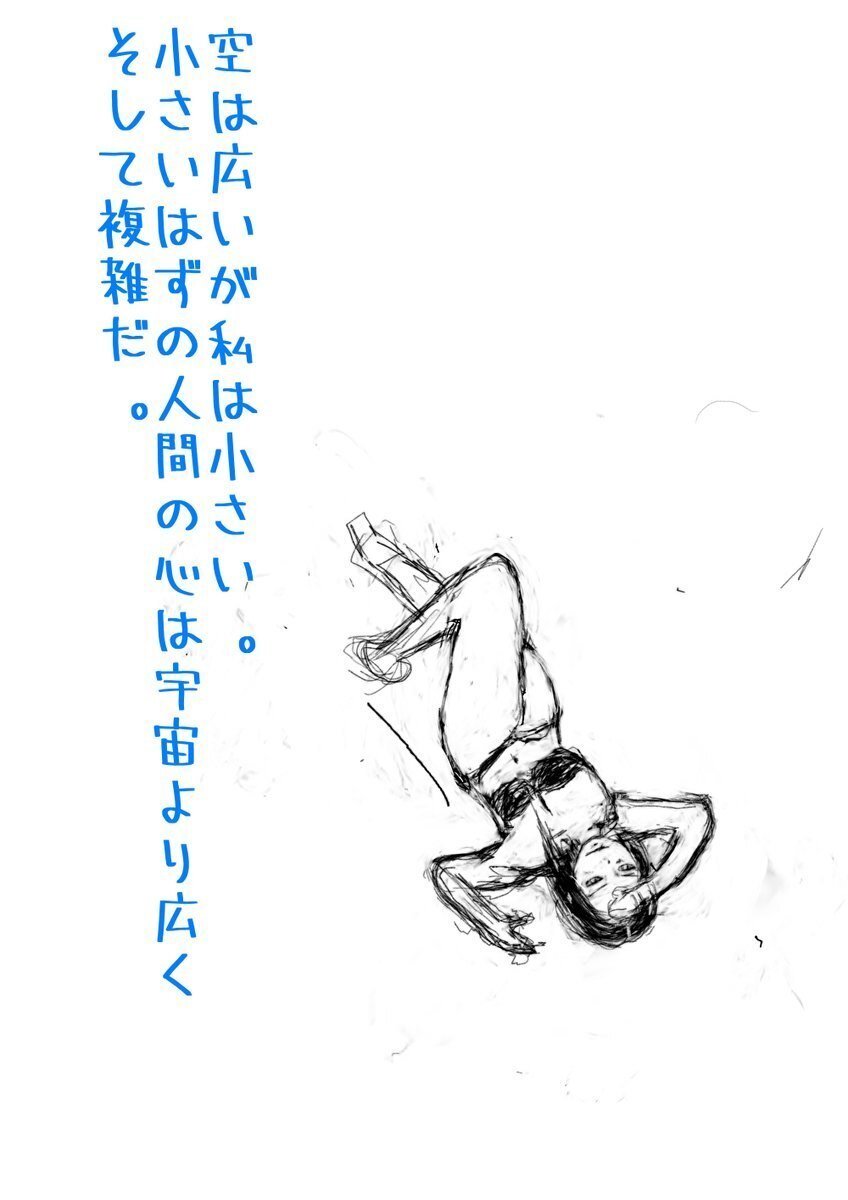 空は広いが私は小さい。
小さいはずの人間の心は宇宙より広く
そして複雑だ。